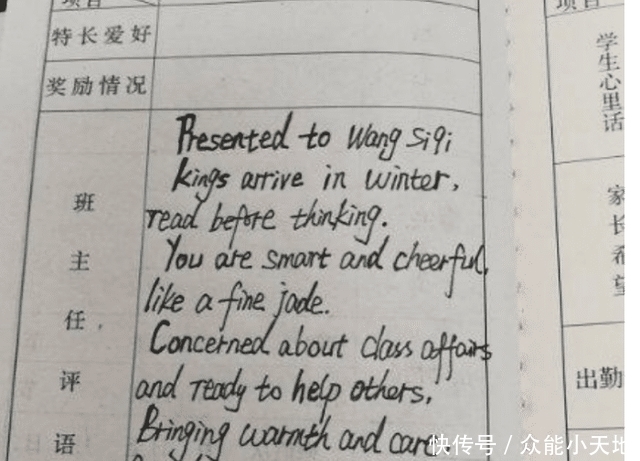 特长爱好
奖励情况
班主任评语
Presented to Wang Siqi
kings arrive in winter,
read before thinking.
You are smart and cheerful,
like a fine jade.
Concerned about class affairs
and ready to help others,
Bringing warmth and care
项目
学生心里话
家长希望
出勤
快传号／众能小天地